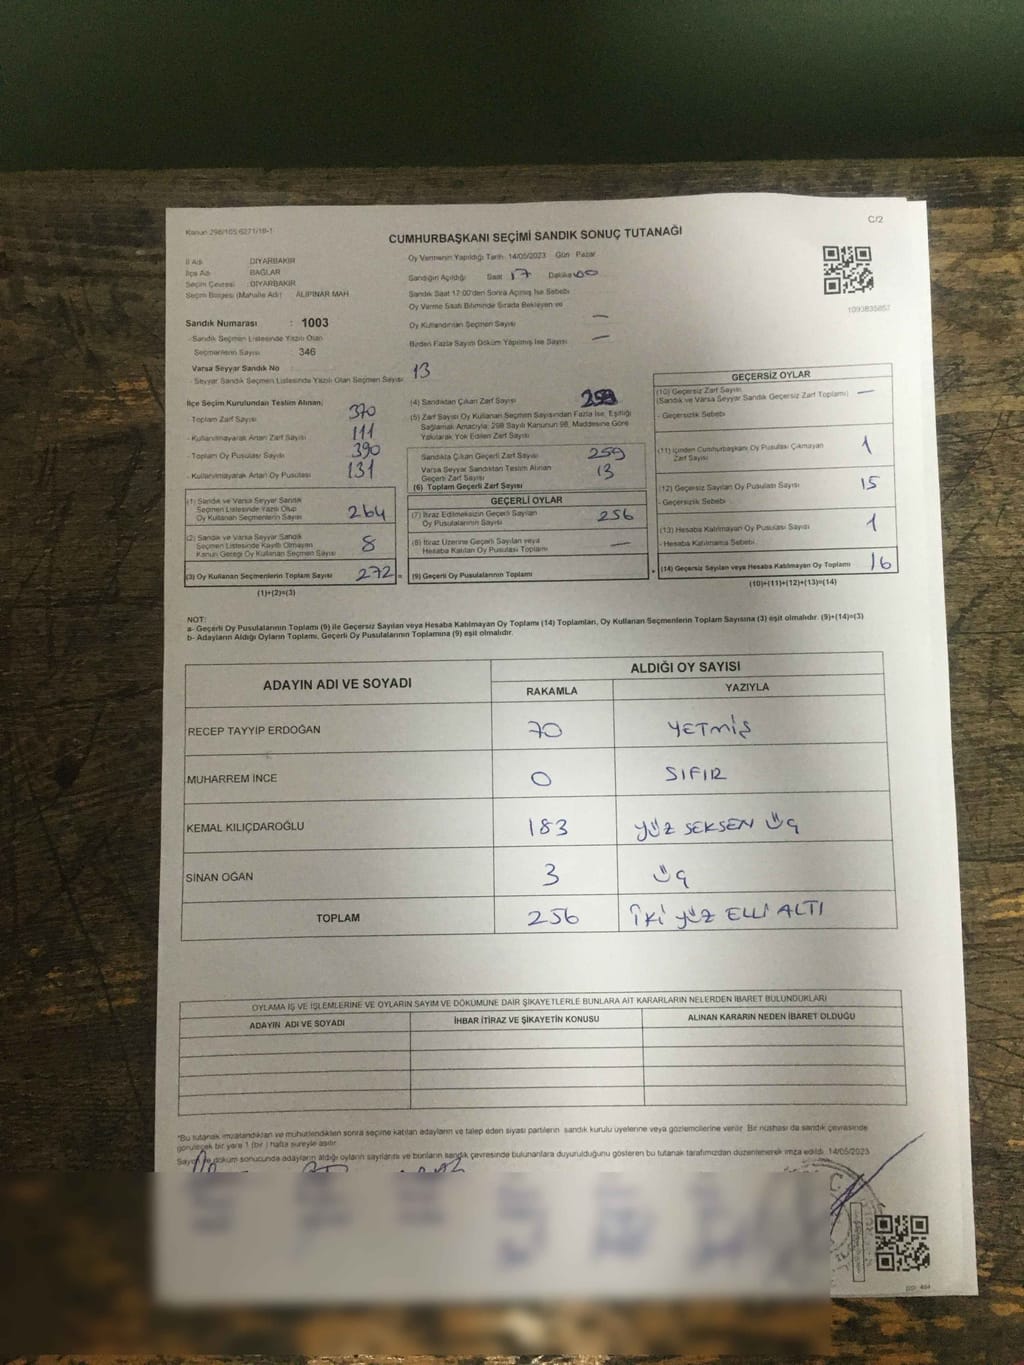 Kanun 298/105 6271/18-1
C/2
CUMHURBAŞKANI SEÇİMİ SANDIK SONUÇ TUTANAĞI
İl Adı DİYARBAKIR
İlçe Adı BAĞLAR
Seçim Çevresi : DİYARBAKIR
Seçim Bölgesi (Mahalle Adı) ALİPINAR MAH.
Sandık Numarası : 1003
Sandık Seçmen Listesinde Yazılı Olan
Seçmenlerin Sayısı 346
Varsa Seyyar Sandık No
- Seyyar Sandık Seçmen Listesinde Yazılı Olan Seçmen Sayısı 13
Oy Vermenin Yapıldığı Tarih 14/05/2023 Gün Pazar
Sandığın Açıldığı Saat 17 Dakika 00
Sandık Saat 17:00'den Sonra Açılmış İse Sebebi
Oy Verme Saati Bitiminde Sırada Bekleyen ve
Oy Kullandırılan Seçmen Sayısı —
Birden Fazla Sayım Döküm Yapılmış İse Sayısı —
İlçe Seçim Kurulundan Teslim Alınan;
- Toplam Zarf Sayısı 370
- Kullanılmayarak Artan Zarf Sayısı 111
- Toplam Oy Pusulası Sayısı 390
- Kullanılmayarak Artan Oy Pusulası 131
(1) Sandık ve Varsa Seyyar Sandık
Seçmen Listesinde Yazılı Olup
Oy Kullanan Seçmenlerin Sayısı 264
(2) Sandık ve Varsa Seyyar Sandık
Seçmen Listesinde Kayıtlı Olmayan
Kanun Gereği Oy Kullanan Seçmen Sayısı 8
(3) Oy Kullanan Seçmenlerin Toplam Sayısı 272 =
(1)+(2)=(3)
(4) Sandıktan Çıkan Zarf Sayısı 259
(5) Zarf Sayısı Oy Kullanan Seçmen Sayısından Fazla İse, Eşitliği
Sağlamak Amacıyla; 298 Sayılı Kanunun 98. Maddesine Göre
Yakılarak Yok Edilen Zarf Sayısı
Sandıkta Çıkan Geçerli Zarf Sayısı 259
Varsa Seyyar Sandıktan Teslim Alınan
Geçerli Zarf Sayısı 13
(6) Toplam Geçerli Zarf Sayısı
GEÇERLİ OYLAR
(7) İtiraz Edilmeksizin Geçerli Sayılan
Oy Pusulalarının Sayısı 256
(8) İtiraz Üzerine Geçerli Sayılan veya
Hesaba Katılan Oy Pusulası Toplamı —
(9) Geçerli Oy Pusulalarının Toplamı +
1093835857
GEÇERSİZ OYLAR
(10) Geçersiz Zarf Sayısı
(Sandık ve Varsa Seyyar Sandık Geçersiz Zarf Toplamı) —
- Geçersizlik Sebebi
(11) İçinden Cumhurbaşkanı Oy Pusulası Çıkmayan
Zarf Sayısı 1
(12) Geçersiz Sayılan Oy Pusulası Sayısı 15
- Geçersizlik Sebebi
(13) Hesaba Katılmayan Oy Pusulası Sayısı 1
- Hesaba Katılmama Sebebi
(14) Geçersiz Sayılan veya Hesaba Katılmayan Oy Toplamı 16
(10)+(11)+(12)+(13)=(14)
NOT:
a- Geçerli Oy Pusulalarının Toplamı (9) ile Geçersiz Sayılan veya Hesaba Katılmayan Oy Toplamı (14) Toplamları, Oy Kullanan Seçmenlerin Toplam Sayısına (3) eşit olmalıdır. (9)+(14)=(3)
b- Adayların Aldığı Oyların Toplamı, Geçerli Oy Pusulalarının Toplamına (9) eşit olmalıdır.
ADAYIN ADI VE SOYADI
ALDIĞI OY SAYISI
RAKAMLA YAZIYLA
RECEP TAYYİP ERDOĞAN 70 YETMİŞ
MUHARREM İNCE 0 SIFIR
KEMAL KILIÇDAROĞLU 183 YÜZ SEKSEN ÜÇ
SİNAN OĞAN 3 ÜÇ
TOPLAM 256 İKİ YÜZ ELLİ ALTI
OYLAMA İŞ VE İŞLEMLERİNE VE OYLARIN SAYIM VE DÖKÜMÜNE DAİR ŞİKAYETLERLE BUNLARA AİT KARARLARIN NELERDEN İBARET BULUNDUKLARI
ADAYIN ADI VE SOYADI İHBAR İTİRAZ VE ŞİKAYETİN KONUSU ALINAN KARARIN NEDEN İBARET OLDUĞU
*Bu tutanak imzalandıktan ve mühürlendikten sonra seçime katılan adayların ve talep eden siyasi partilerin sandık kurulu üyelerine veya gözlemcilerine verilir. Bir nüshası da sandık çevresinde
görülecek bir yere 1 (bir) hafta süreyle asılır.
Sayım ve döküm sonucunda adayların aldığı oyların sayılarını ve bunların sandık çevresinde bulunanlara duyurulduğunu gösteren bu tutanak tarafımızdan düzenlenerek imza edildi. 14/05/2023